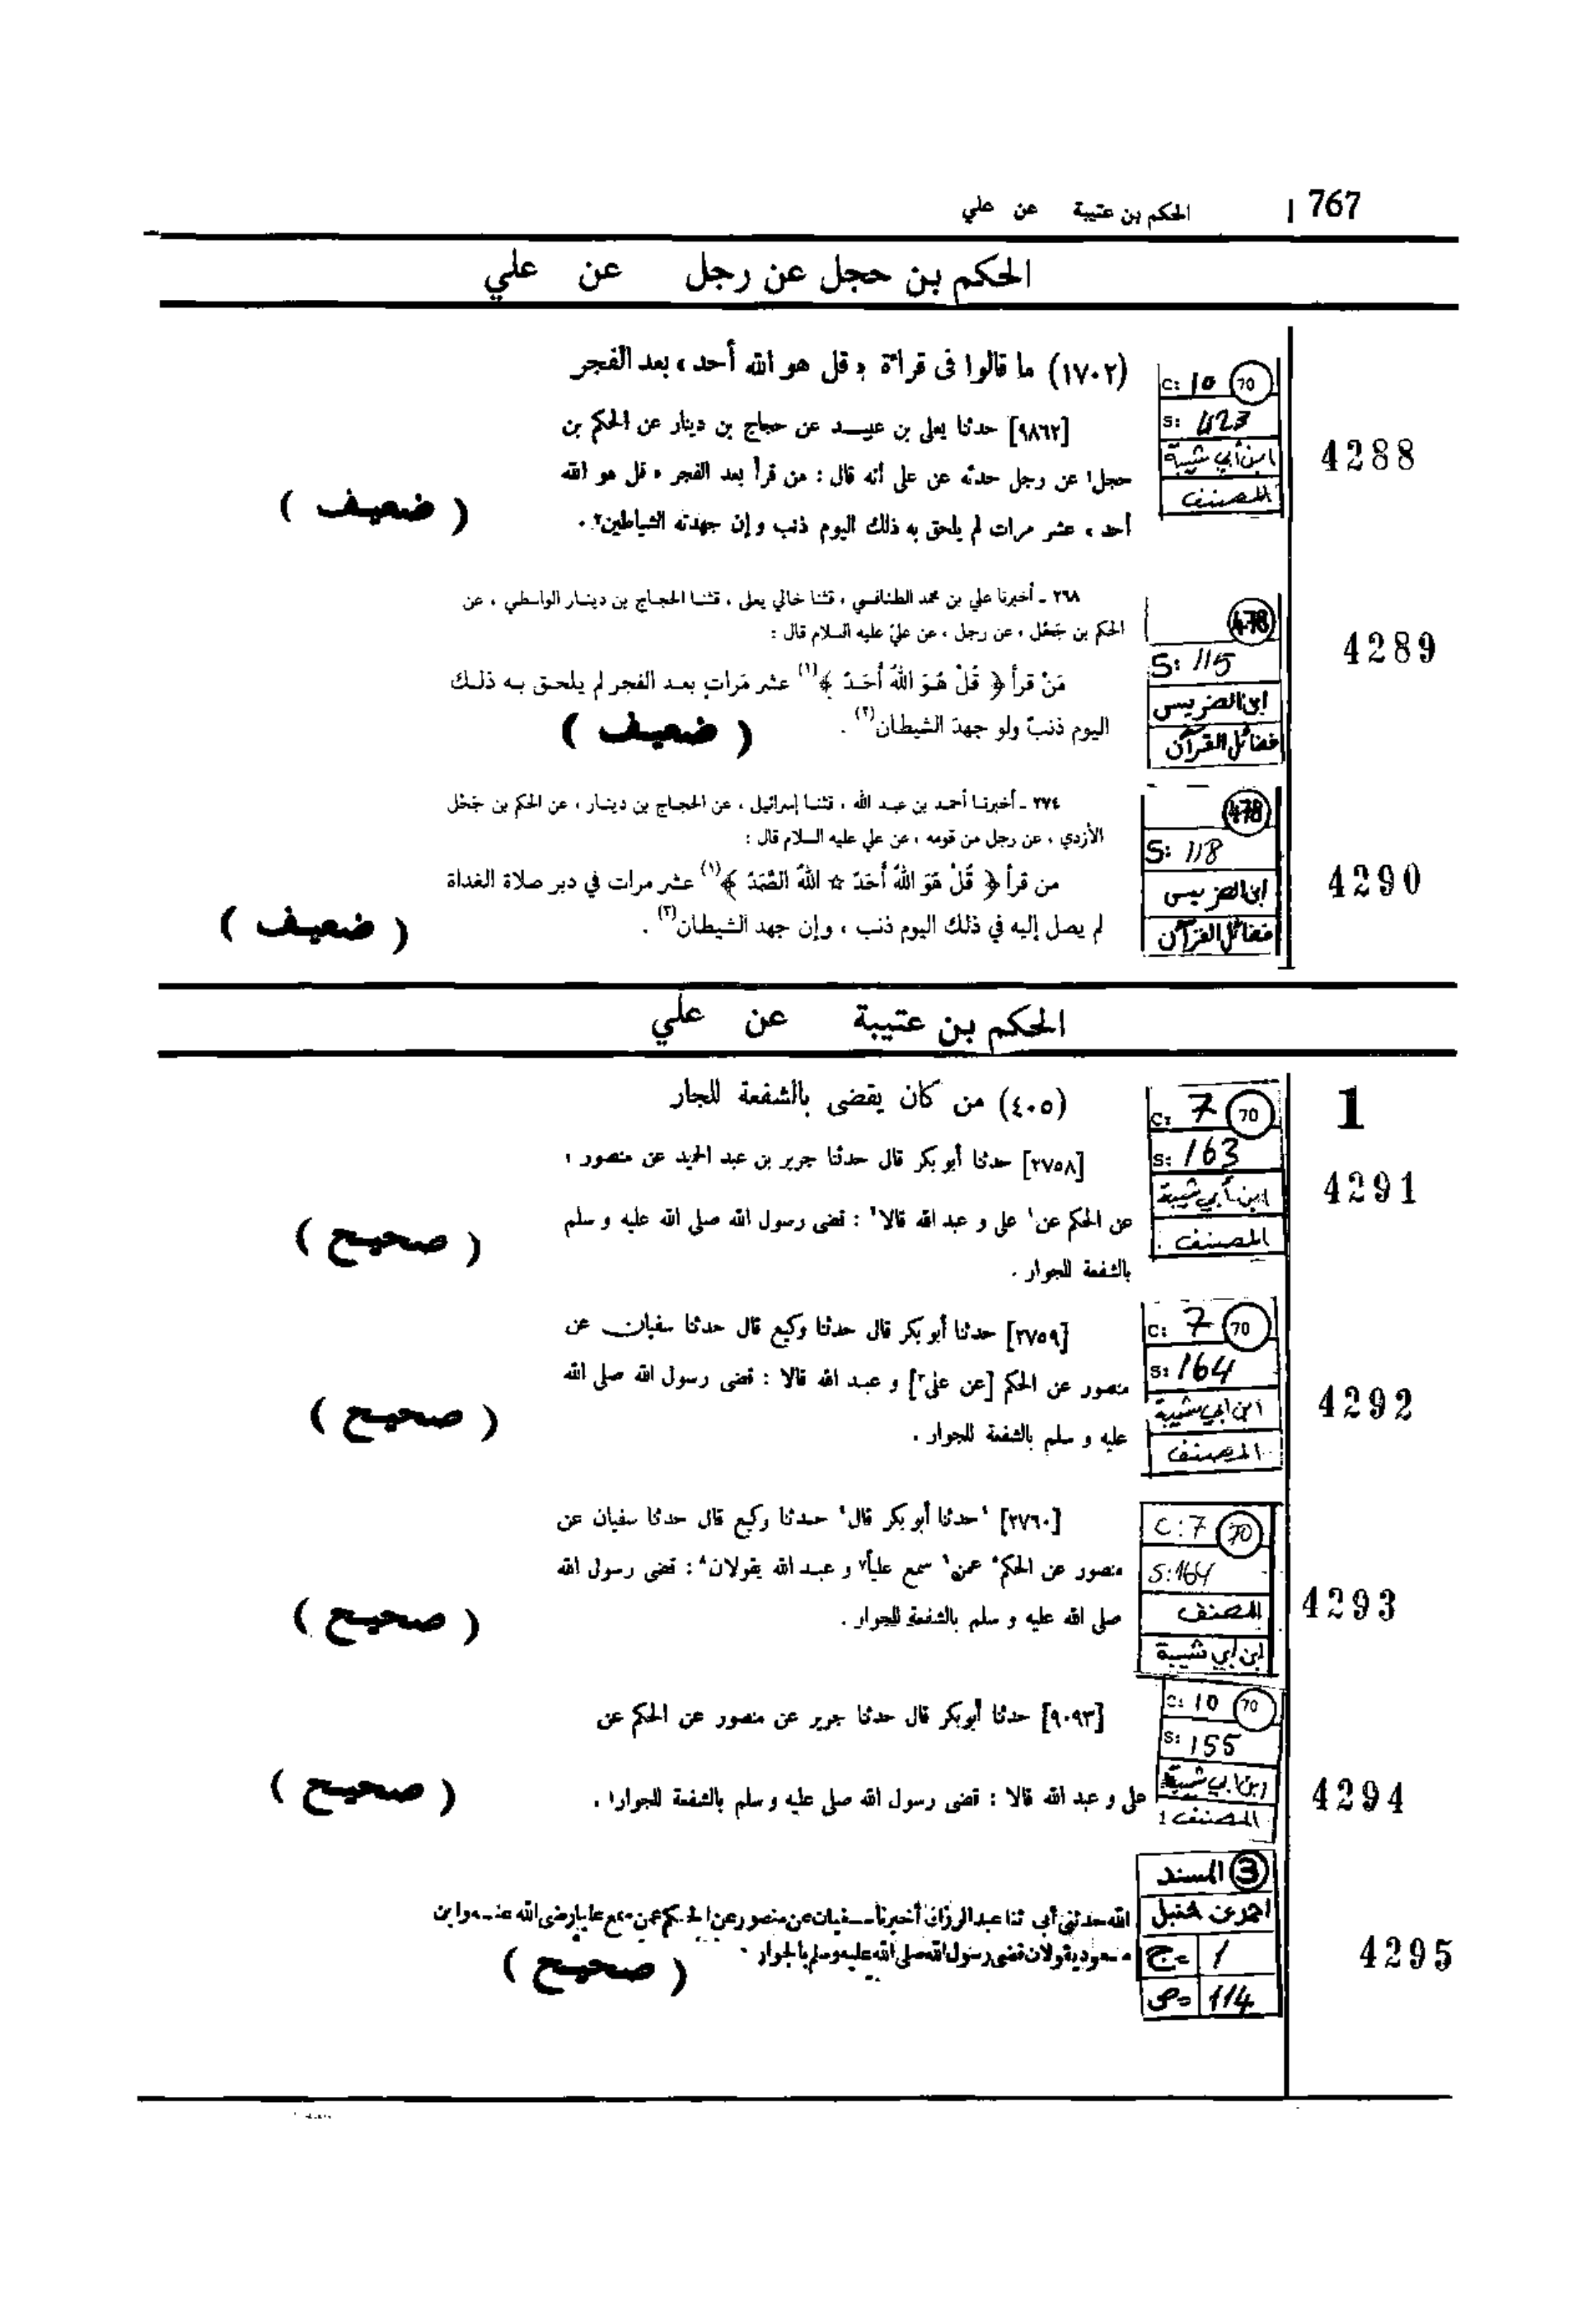 767 الحكم بن عتيبة عن علي
الحكم بن حجل عن رجل عن علي
(١٧٠٢) ما قالوا فى قراءة « قل هو الله أحد » بعد الفجر
[٩٨٦٢] حدثنا يعلى بن عبيد عن حجاج بن دينار عن الحكم بن
حجل١ عن رجل حدثه عن على أنه قال : من قرأ بعد الفجر « قل هو الله
أحد » عشر مرات لم يلحق به ذلك اليوم ذنب و إن جهدته الشياطين٢.
( ضعيف )
C: 10 70
S: 423
ابن أبي شيبة
المصنف
4288
٢٦٨ ـ أخبرنا علي بن محمد الطنافسي ، قثنا خالي يعلى ، قثنا الحجاج بن دينار الواسطي ، عن
الحكم بن جَحْل ، عن رجل ، عن عليّ عليه السلام قال :
مَنْ قرأ ﴿ قُلْ هُوَ اللهُ أَحَدٌ ﴾(١) عشر مَرات بعد الفجر لم يلحق به ذلك
اليوم ذنبٌ ولو جهدَ الشيطان(٢) .
( ضعيف )
478
S: 115
ابن الضريس
فضائل القرآن
4289
٢٧٤ ـ أخبرنا أحمد بن عبد الله ، قثنا إسرائيل ، عن الحجاج بن دينار ، عن الحكم بن جَحْل
الأزدي ، عن رجل من قومه ، عن علي عليه السلام قال :
من قرأ ﴿ قُلْ هَوَ اللهُ أَحَدٌ ☆ اللهُ الصَّمَدُ ﴾(١) عشر مرات في دبر صلاة الغداة
لم يصل إليه في ذلك اليوم ذنب ، وإن جهد الشيطان(٢) .
( ضعيف )
478
S: 118
ابن الضريس
فضائل القرآن
4290
الحكم بن عتيبة عن علي
1
(٤٠٥) من كان يقضى بالشفعة للجار
[٢٧٥٨] حدثنا أبو بكر قال حدثنا جرير بن عبد الحميد عن منصور ،
عن الحكم عن١ على و عبد الله قالا٢ : قضى رسول الله صلى الله عليه و سلم
بالشفعة للجوار .
( صحيح )
C: 7 70
S: 163
ابن أبي شيبة
المصنف
4291
[٢٧٥٩] حدثنا أبو بكر قال حدثنا وكيع قال حدثنا سفيان عن
منصور عن الحكم [عن على٣] و عبد الله قالا : قضى رسول الله صلى الله
عليه و سلم بالشفعة للجوار .
( صحيح )
C: 7 70
S: 164
ابن ابي شيبة
المصنف
4292
[٢٧٦٠] ٤حدثنا أبو بكر قال٤ حدثنا وكيع قال حدثنا سفيان عن
منصور عن الحكم٥ عمن٦ سمع علياً٧ و عبد الله يقولان٨ : قضى رسول الله
صلى الله عليه و سلم بالشفعة للجوار .
( صحيح )
C: 7 70
S: 164
المصنف
ابن ابي شيبة
4293
[٩٠٩٣] حدثنا أبوبكر قال حدثنا جرير عن منصور عن الحكم عن
على و عبد الله قالا : قضى رسول الله صلى عليه و سلم بالشفعة للجوار١ .
( صحيح )
C: 10 70
S: 155
ابن ابي شيبة
المصنف
4294
الله حدثنى أبى ثنا عبد الرزاق أخبرنا سفيان عن منصور عن الحكم عمن سمع عليا رضى الله عنه وابن
مسعود يقولان قضى رسول الله صلى الله عليه وسلم بالجوار
( صحيح )
3 المسند
احمد بن حنبل
ج= 1
ص= 114
4295